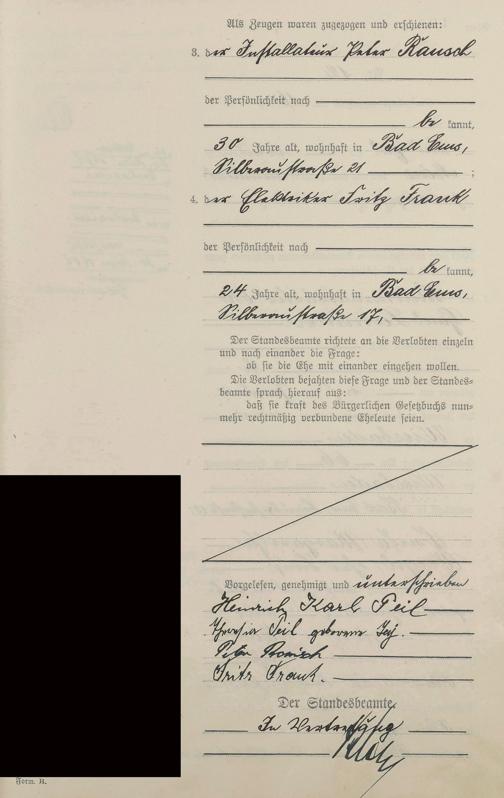 Als Zeugen waren zugezogen und erschienen:
3. der Installateur Peter Rausch
der Persönlichkeit nach
be kannt,
30 Jahre alt, wohnhaft in Bad Ems,
Silberaustraße 21 ;
4. der Elektriker Fritz Frank
der Persönlichkeit nach
be kannt,
24 Jahre alt, wohnhaft in Bad Ems,
Silberaustraße 17,
Der Standesbeamte richtete an die Verlobten einzeln
und nach einander die Frage:
ob sie die Ehe mit einander eingehen wollen.
Die Verlobten bejahten diese Frage und der Standes-
beamte sprach hierauf aus:
daß sie kraft des Bürgerlichen Gesetzbuchs nun-
mehr rechtmäßig verbundene Eheleute seien.
Vorgelesen, genehmigt und unterschrieben
Heinrich Karl Peil
Peil geborene
Peter Rausch
Fritz Frank.
Der Standesbeamte.
In Vertretung
Form. H.